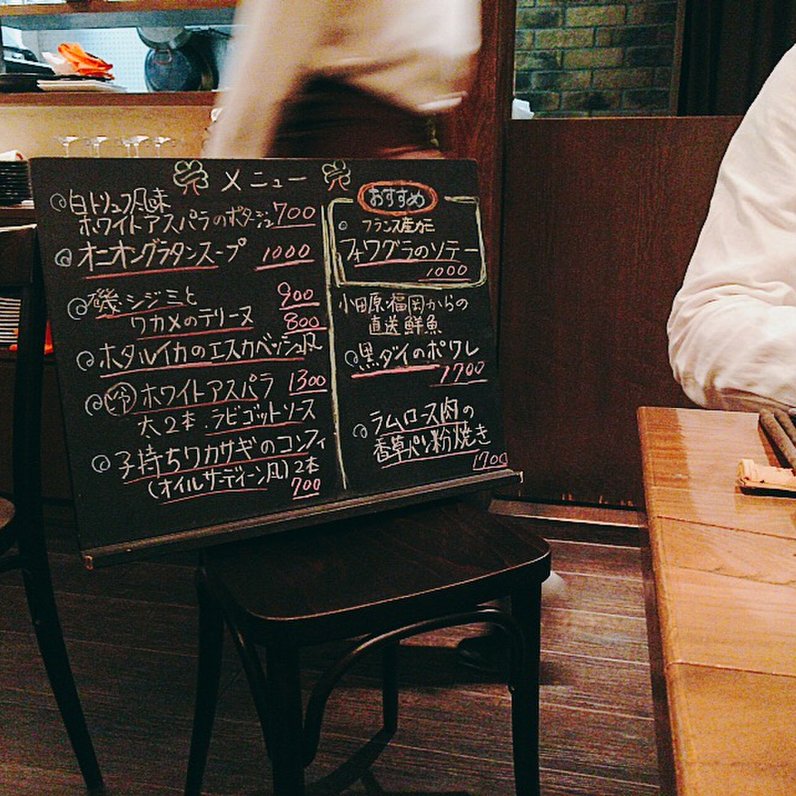 メニュー
白トリュフ風味
ホワイトアスパラのポタージュ 700
オニオングラタンスープ 1000
磯シジミと 900
ワカメのテリーヌ 800
ホタルイカのエスカベッシュ風
冷 ホワイトアスパラ 1300
太2本 ラビゴットソース
子持ちワカサギのコンフィ
(オイルサーディーン風) 2本
700
おすすめ
フランス産カモ
フォワグラのソテー
1000
小田原・福岡からの
直送鮮魚
黒ダイのポワレ
1700
ラムロース肉の
香草パン粉焼き
1700